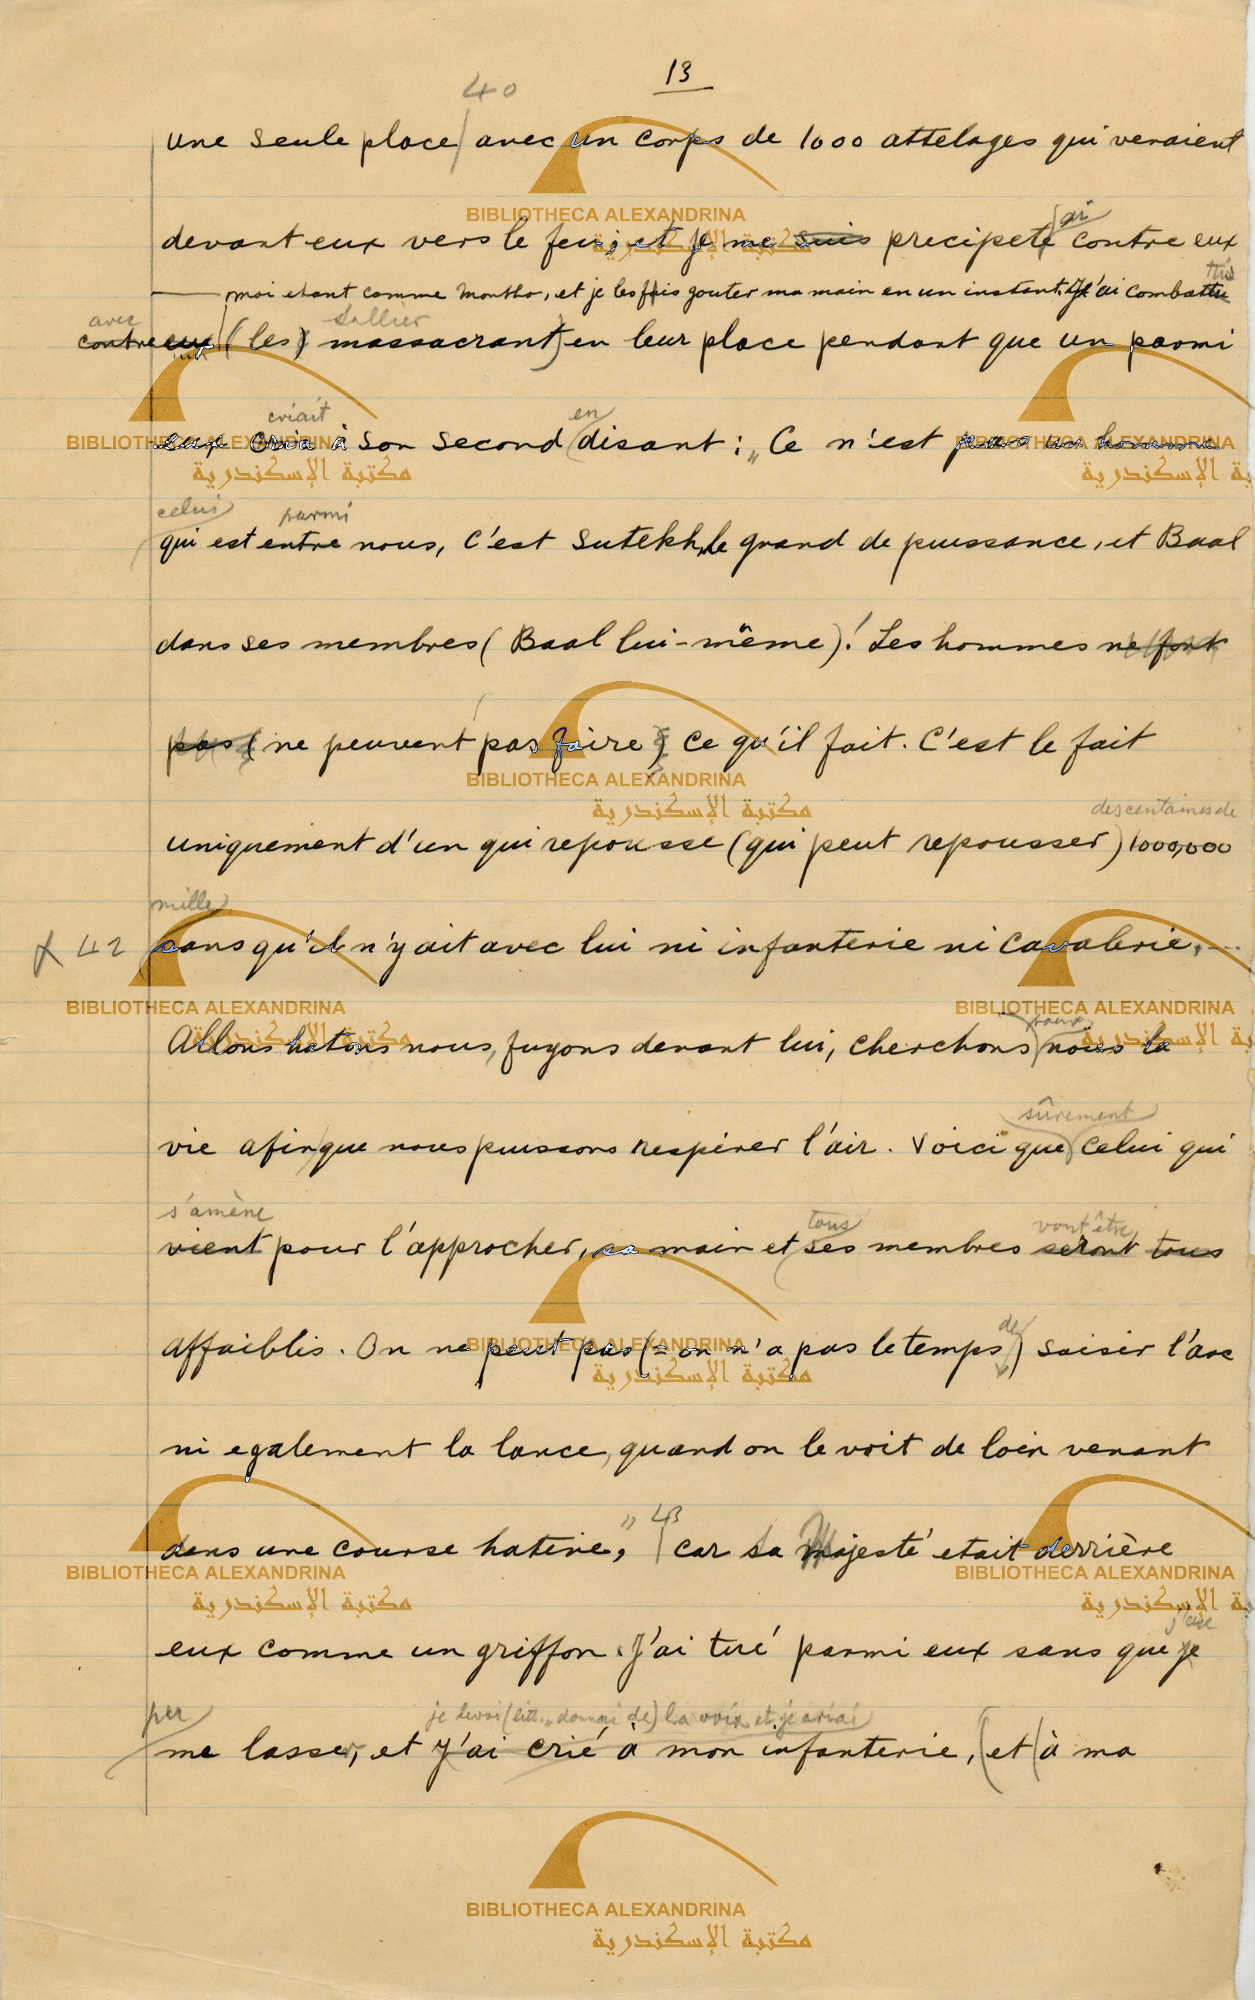 13
40
une seule place avec un corps de 1000 attelages qui venaient
devant eux vers le feu; et je me suis precipeté contre eux
ai
moi etant comme Monthu, et je les fis gouter ma main en un instant. J'ai combattu
tis
avec
Sallier
contre eux (les) massacrant) en leur place pendant que un parmi
criait
en
eux cria à son second disant : „ Ce n'est pas un homme
celui
parmi
qui est entre nous, c'est Sutekh, le grand de puissance, et Baal
dans ses membres ( Baal lui-même)! Les hommes ne font
pas ( ne peuvent pas faire ) ce qu'il fait. C'est le fait
des centaines de
uniquement d'un qui repousse (qui peut repousser) 1000,000
mille
42 sans qu'il n'y ait avec lui ni infanterie ni cavalerie, --
Allons hatons nous, fuyons devant lui, cherchons nous la
pour
vie afin que nous puissons respirer l'air. Voici que celui qui
sûrement
s'amène
tous
vont être
vient pour l'approcher, sa main et ses membres seront tous
affaiblis. On ne peut pas (= on n'a pas le temps) saisir l'arc
de
ni egalement la lance, quand on le voit de loin venant
dans une course hative, „ 43 car sa Majesté etait derrière
eux comme un griffon. J'ai tué parmi eux sans que je
je levai (litt. „ donnai de) la voix et je criai
me lasse, et J'ai crié à mon infanterie, et à ma
BIBLIOTHECA ALEXANDRINA
مكتبة الإسكندرية